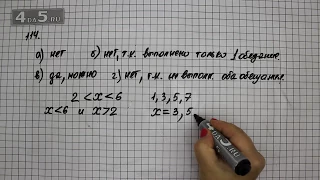 4·5.ru
114.
а) нет б) нет, т.к. выполнено только 1 обещание.
в) да, можно г) нет, т.к. не выполн. оба обещания.
2 < x < 6 1, 3, 5, 7
x < 6 и x > 2 x = 3, 5